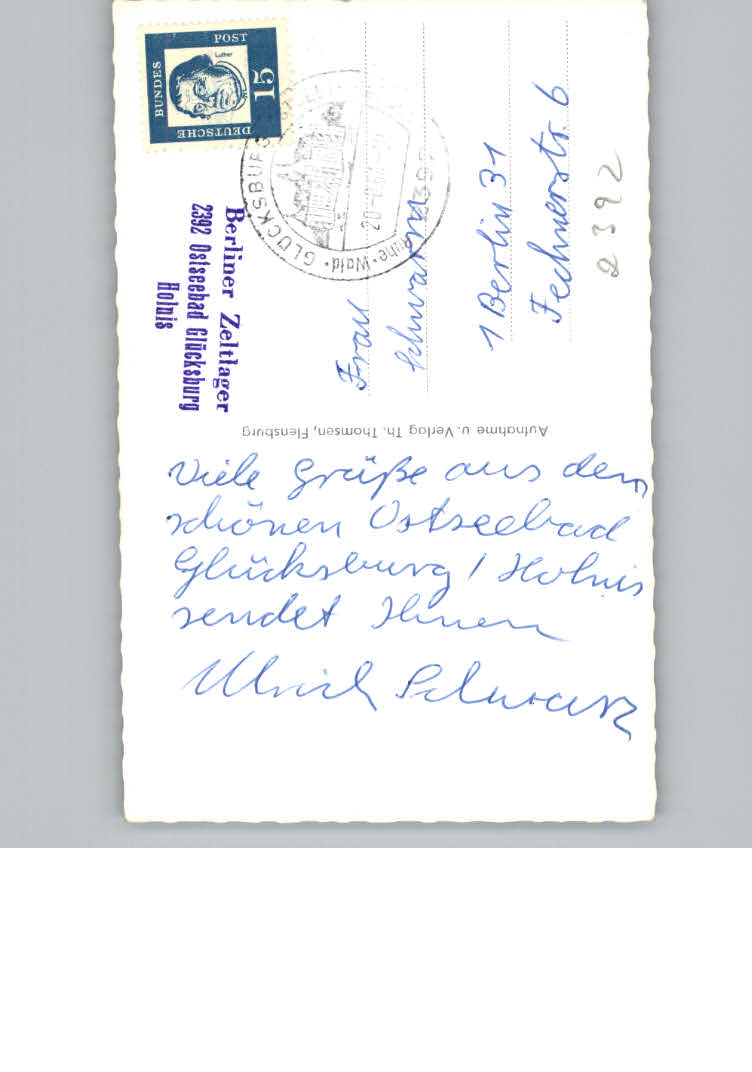 DEUTSCHE
BUNDES
POST
15
Luther
GLÜCKSBURG
Ruhe · Wald
2392
Berliner Zeltlager
2392 Ostseebad Glücksburg
Holnis
Frau
1 Berlin 31
Fechnerstr. 6
2392
Aufnahme u. Verlag Th. Thomsen, Flensburg
Viele Grüße aus dem
schönen Ostseebad
Glücksburg / Holnis
sendet Ihnen
Ulrich Schwarz